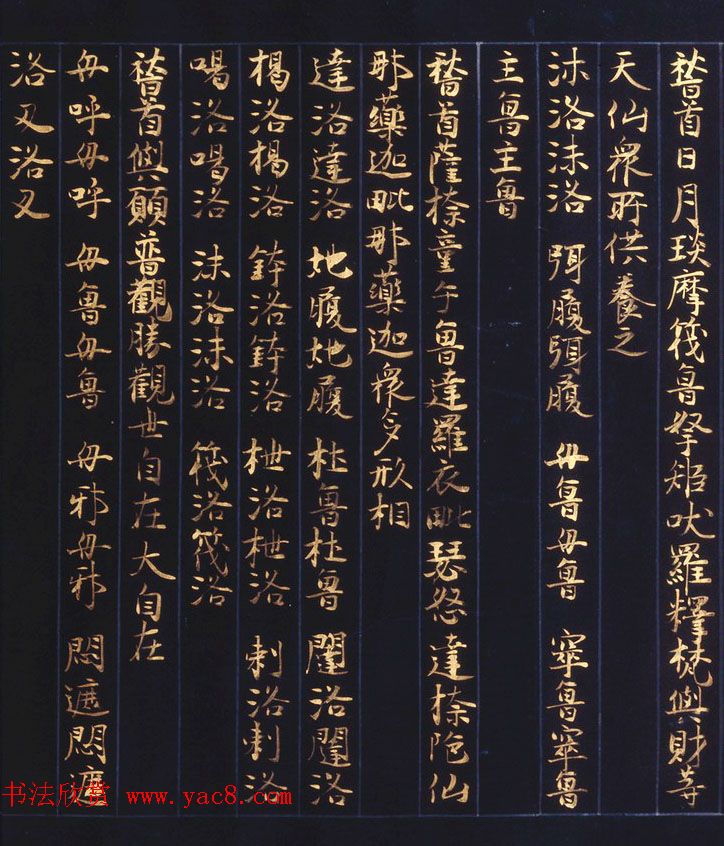 稽首日月琰摩筏魯拏矩吠羅釋梵與財等
天仙衆所供養之
沫洛沫洛 弭履弭履 毋魯毋魯 窣魯窣魯
主魯主魯
稽首薩捺童午魯達羅衣毗瑟怒達捺陁仙
那藥迦毗那藥迦衆多形相
達洛達洛 地履地履 杜魯杜魯 闥洛闥洛
楬洛楬洛 鉢洛鉢洛 枻洛枻洛 刺洛刺洛
喝洛喝洛 沫洛沫洛 筏洛筏洛
稽首與願普觀勝觀世自在大自在
毋呼毋呼 毋魯毋魯 毋邪毋邪 悶遮悶遮
洛叉洛叉
书法欣赏 www.yac8.com